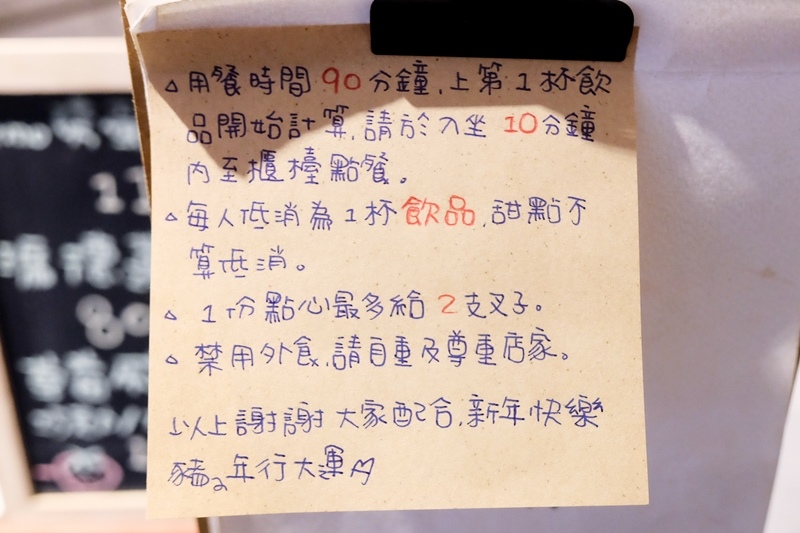 △用餐時間90分鐘,上第1杯飲
品開始計算,請於入坐10分鐘
內至櫃檯點餐。
△每人低消為1杯飲品,甜點不
算低消。
△1份點心最多給2支叉子。
△禁用外食,請自重及尊重店家。
以上謝謝大家配合,新年快樂
豬年行大運